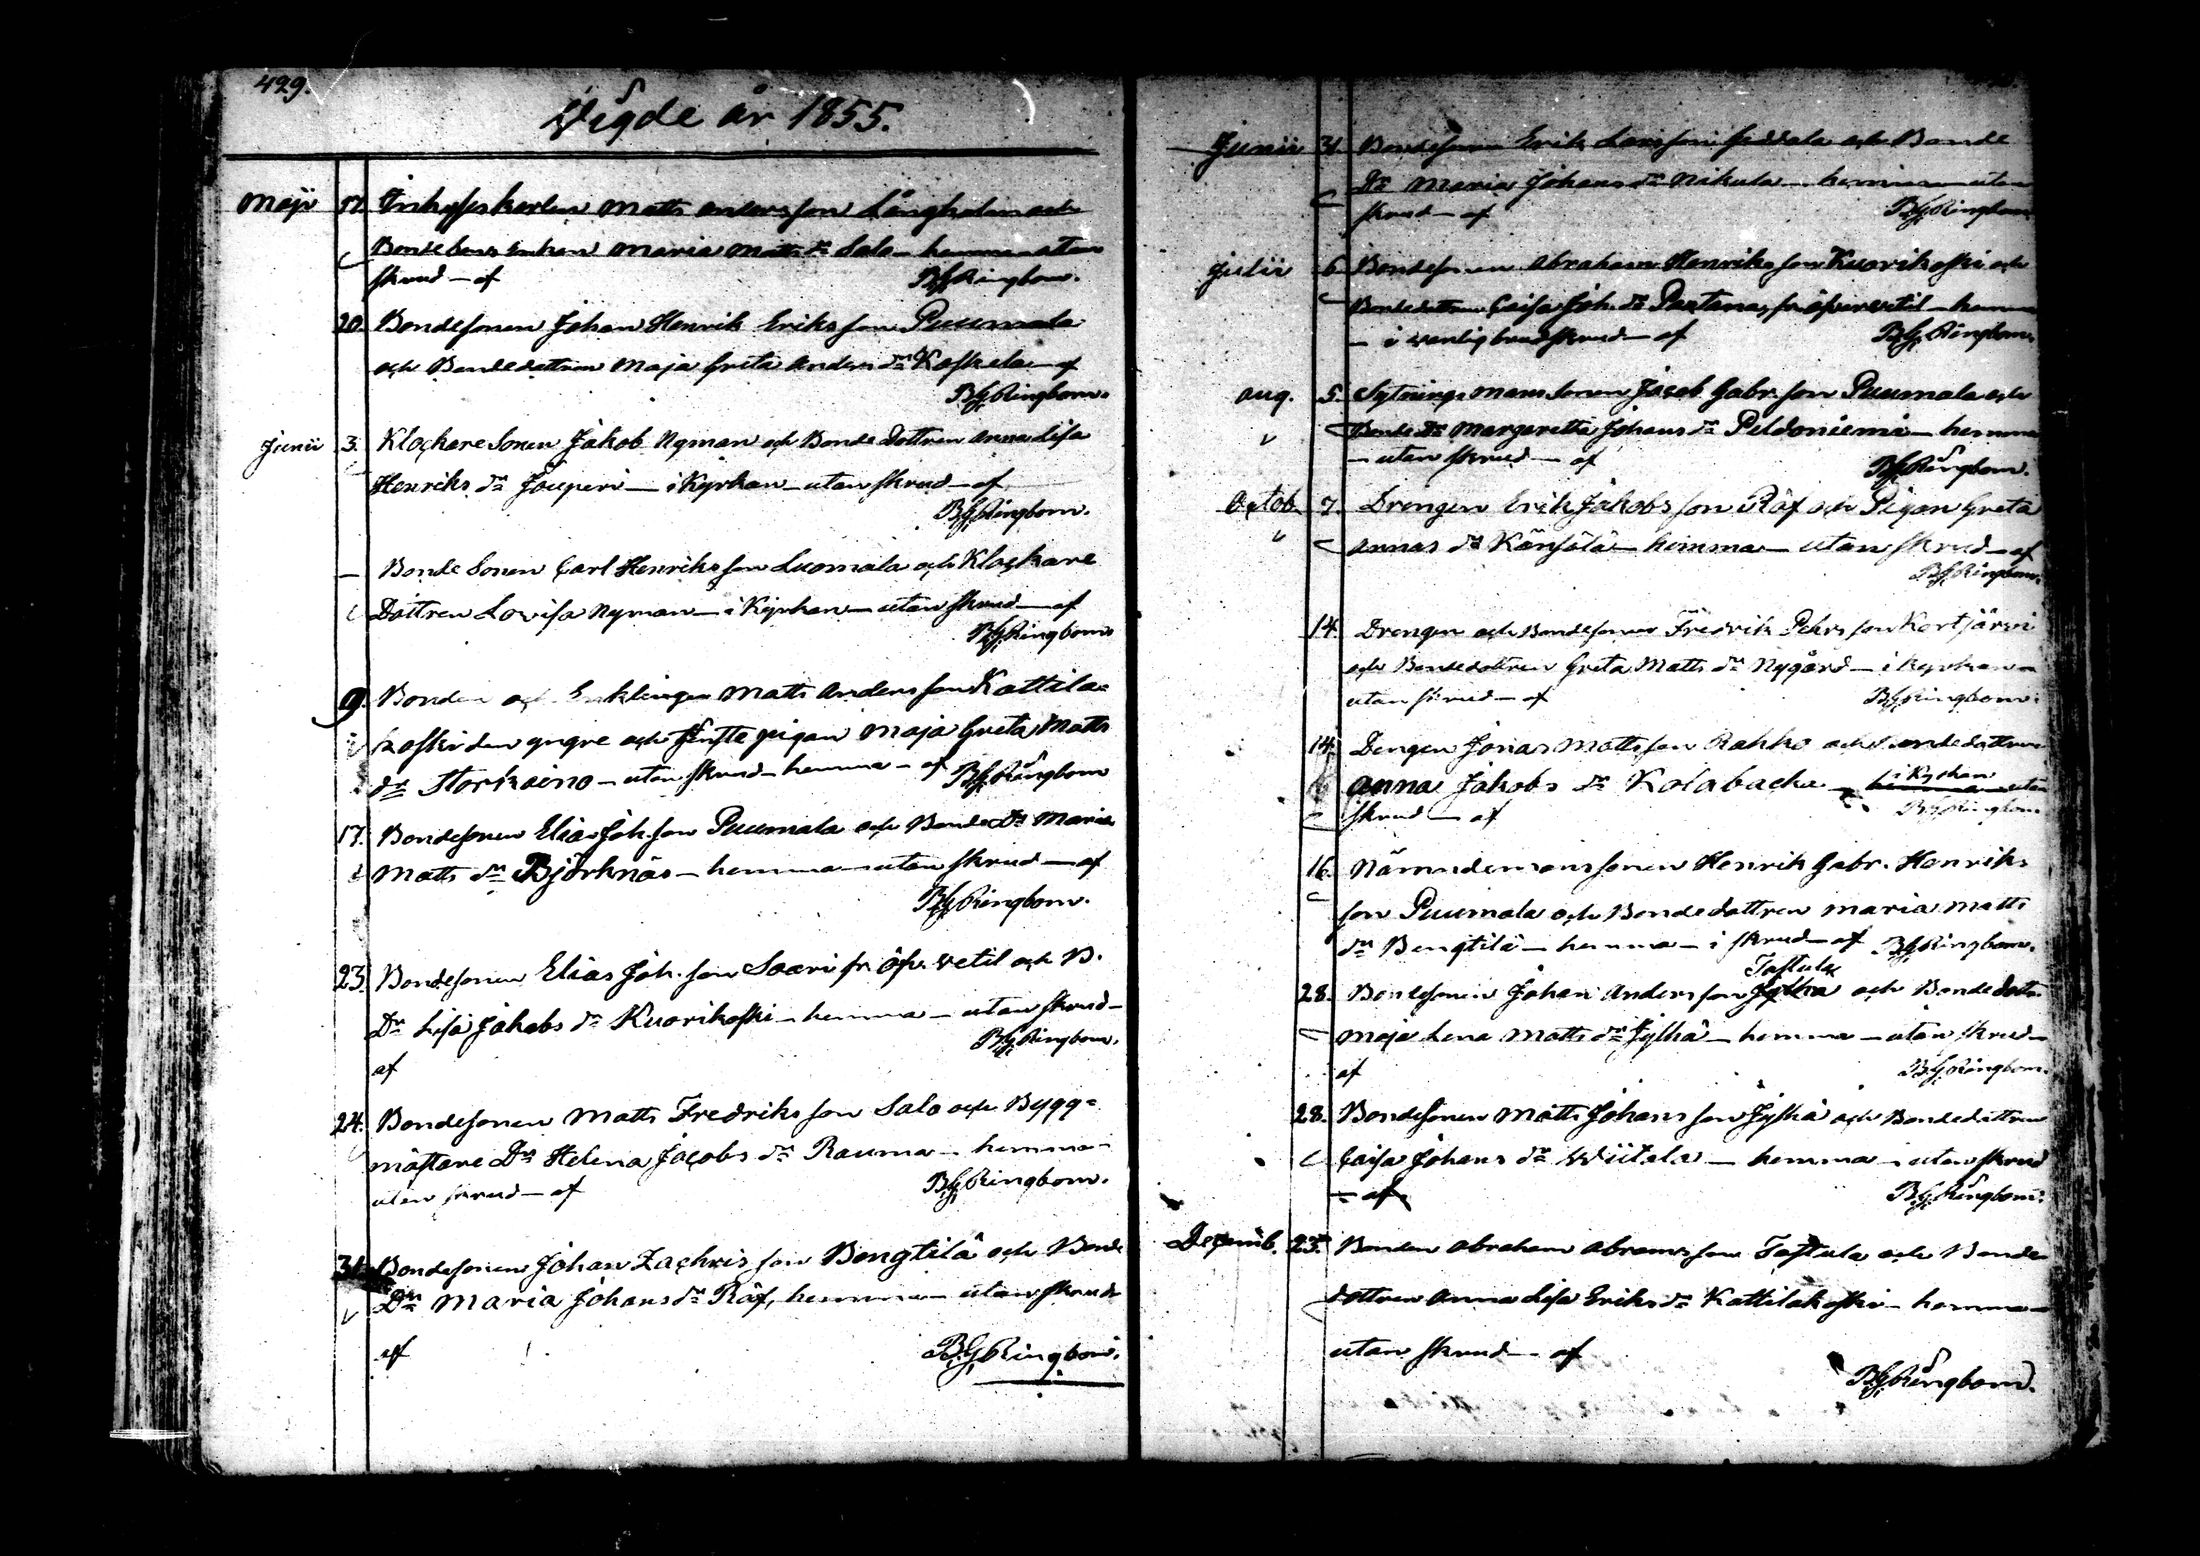 429.
Vigde år 1855.
Maji 17. Inhyseskarlen Matts Andersson Långholm och
Bondesons Enkan Maria Matts dr Salo – hemma utan
skrud – af BGRingbom.
20. Bondesonen Johan Henrik Eriksson Puumala
och Bondedottren Maja Greta Anders dr Koskela – af
BGRingbom.
Junii 3. Klockare Sonen Jakob Nyman och Bonde Dottren Anna Lisa
Henriks dr Jouperi – i Kyrkan – utan skrud – af
BGRingbom.
– Bonde Sonen Carl Henriksson Luomala och Klockare
Dottren Lovisa Nyman – i Kyrkan – utan skrud – af
BGRingbom
9. Bonden och Enklingen Matts Andersson Kattila=
koski den yngre och pigan Maja Greta Matts
dr Storkaino – utan skrud – hemma – af BGRingbom
17. Bondesonen Elias Joh.son Puumala och Bonde Dr Maria
Matts dr Björknäs – hemma – utan skrud – af
BGRingbom.
23. Bondesonen Elias Joh.son Saari fr. Öfv. Vetil och B.
Dr Lisa Jakobs dr Kuorikoski – hemma – utan skrud –
af BGRingbom.
24. Bondesonen Matts Fredriksson Salo och Bygg=
mästare Drn Helena Jacobs dr Rauma – hemma –
utan skrud – af BGRingbom.
31. Bondesonen Johan Zachrisson Bengtilä och Bonde
Drn Maria Johans dr Räf, hemma – utan skrud
af BGRingbom.
Junii 31. Bondesonen Erik och Bonde
Dr Maria Johans dr Nikula – hemma – utan
skrud – af BGRingbom
Julii 6. Bondesonen Abraham Henriksson Kuorikoski och
Bondedottren Caisa Joh. dr Pastanas fr. Öfvervetil – hemma
– i vanlig brudskrud – af BGRingbom
Aug. 5. Sytningsmans Sonen Jacob Gabr.son Puumala och
Bonde Dr Margaretta Johans dr Peldoniemi – hemma
– utan skrud – af BGRingbom.
Octob. 7. Drengen Erik Jakobsson Räf och Pigan Greta
Annas dr Känsälä – hemma – utan skrud – af
BGRingbom.
14. Drengen och Bondesonen Fredrik Pehrsson Kortjärvi
och Bondedottren Greta Matts dr Nygård – i kyrkan –
utan skrud – af BGRingbom.
14. Dengen Jonas Mattsson Rahko och Bondedottren
i Kyrkan
Anna Jakobs dr Kolabacka – hemma utan
skrud – af BGRingbom
16. Nämndemanssonen Henrik Gabr. Henriks
son Puumala och Bondedottren Maria Matts
dr Bengtilä – hemma – i skrud – af BGRingbom.
Tastula
28. Bondesonen Johan Andersson Jylhä och Bondedottr.
Maja Lena Matts dr Jylhä – hemma – utan skrud –
af BGRingbom.
28. Bondesonen Matts Johansson Jylhä och Bondedottren
Caisa Johans dr Wiitala – hemma – utan skrud
– af BGRingbom.
Decemb. 23. Bonden Abraham Abramsson Tastula och Bonde
dottren Anna Lisa Eriks dr Kattilakoski – hemma –
utan skrud – af
BGRingbom.